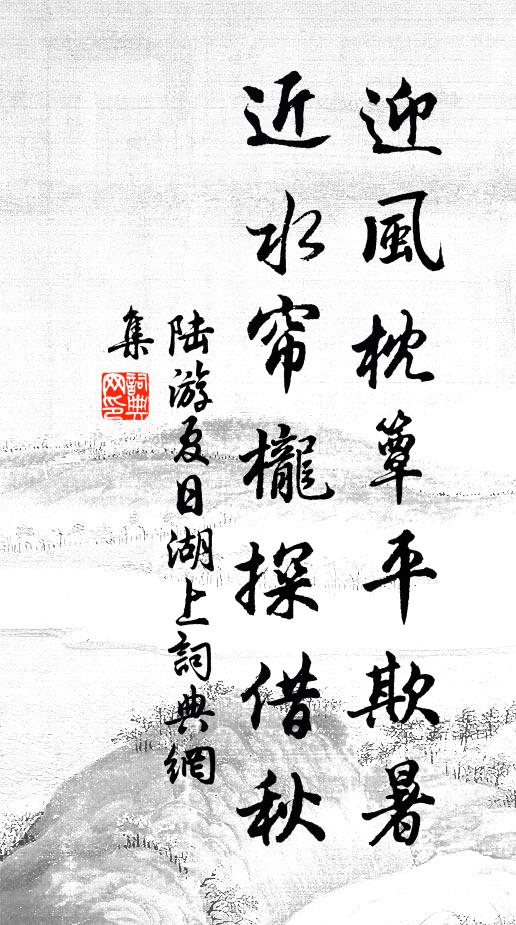 迎風枕簟平欺暑
近水帘櫳探借秋
陸游夏日湖上詞典網
集
詞典
网印